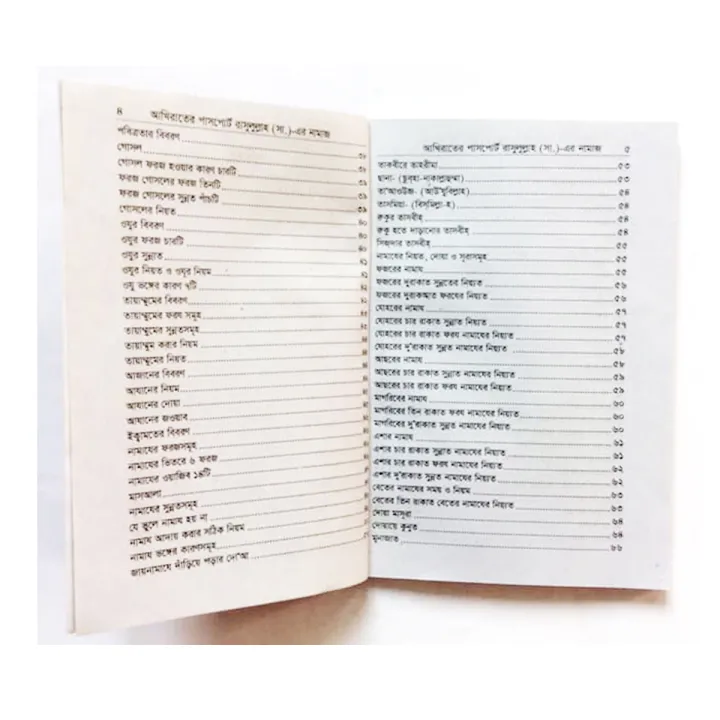 ৪ আখিরাতের পাসপোর্ট রাসূলুল্লাহ (সা.)-এর নামাজ
পবিত্রতার বিবরণ
গোসল
গোসল ফরজ হওয়ার কারণ চারটি
ফরজ গোসলের ফরজ তিনটি
ফরজ গোসলের সুন্নত পাঁচটি
গোসলের নিয়ত
ওযুর বিবরণ
ওযুর ফরজ চারটি
ওযুর সুন্নাত
ওযুর নিয়ত ও ওযুর নিয়ম
ওযু ভঙ্গের কারণ ৭টি
তায়াম্মুমের বিবরণ
তায়াম্মুমের ফরয সমূহ
তায়াম্মুমের সুন্নতসমূহ
তায়াম্মুম করার নিয়ম
তায়াম্মুমের নিয়ত
আজানের বিবরণ
আযানের নিয়ম
আযানের দোয়া
আযানের জওয়াব
ইক্বামতের বিবরণ
নামাযের ফরজসমূহ
নামাযের ভিতরে ৬ ফরজ
নামাযের ওয়াজিব ১৪টি
মাসআলা
নামাযের সুন্নতসমূহ
যে ভুলে নামায হয় না
নামায আদায় করার সঠিক নিয়ম
নামায ভঙ্গের কারণসমূহ
জায়নামাযে দাঁড়িয়ে পড়ার দো'আ
আখিরাতের পাসপোর্ট রাসূলুল্লাহ (সা.)-এর নামাজ ৫
তাকবীরে তাহরীমা ৫৩
ছানা- (ছুবহা-নাকাল্লাহুম্মা) ৫৩
তা'আওউজ- (আউ'যুবিল্লাহ) ৫৪
তাসমিয়া- (বিস্‌মিল্লা-হ) ৫৪
রুকুর তাসবীহ ৫৪
রুকু হতে দাঁড়ানোর তাসবীহ ৫৪
সিজদার তাসবীহ ৫৫
নামাযের নিয়ত, দোয়া ও সূরাসমূহ ৫৫
ফজরের নামায ৫৫
ফজরের দুরাকাত সুন্নতের নিয়্যত ৫৬
ফজরের দুরাকআত ফরযের নিয়্যত ৫৬
যোহরের নামায ৫৭
যোহরের চার রাকাত সুন্নাত নিয়্যত ৫৭
যোহরের চার রাকাত ফরয নামাযের নিয়্যত ৫৭
যোহরের দু'রাকাত সুন্নত নামাযের নিয়্যত ৫৮
আছরের নামায ৫৮
আছরের চার রাকাত সুন্নাত নামাযের নিয়্যত ৫৯
আছরের চার রাকাত ফরয নামাযের নিয়্যত ৫৯
মাগরিবের নামায ৬০
মাগরিবের তিন রাকাত ফরয নামাযের নিয়্যত ৬০
মাগরিবের দু'রাকাত সুন্নত নামাযের নিয়্যত ৬০
এশার নামায ৬১
এশার চার রাকাত সুন্নত নামাযের নিয়্যত ৬১
এশার চার রাকাত ফরয নামাযের নিয়্যত ৬২
এশার দু'রাকাত সুন্নত নামাযের নিয়্যত ৬২
বেতের নামাযের সময় ও নিয়ম ৬২
বেতের তিন রাকাত বেতের নামাযের নিয়্যত ৬৩
দোয়া মাসুরা ৬৩
দোয়ায়ে কুনুত ৬৪
মুনাজাত ৬৬